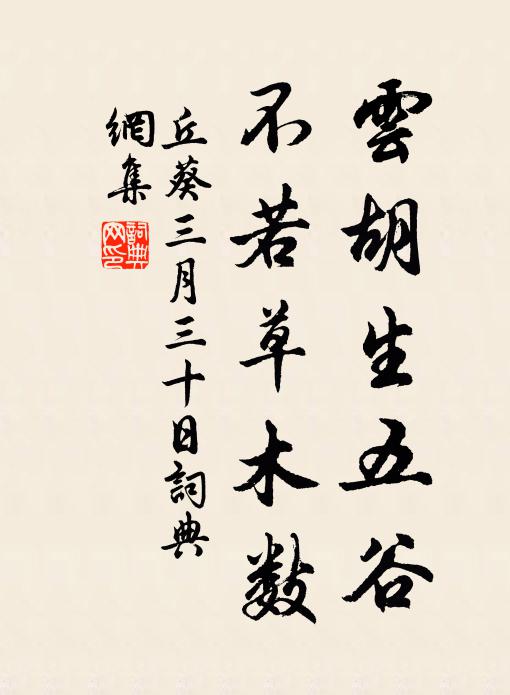 雲胡生五谷
不若草木数
丘葵三月三十日詞典
網集
詞典
网印